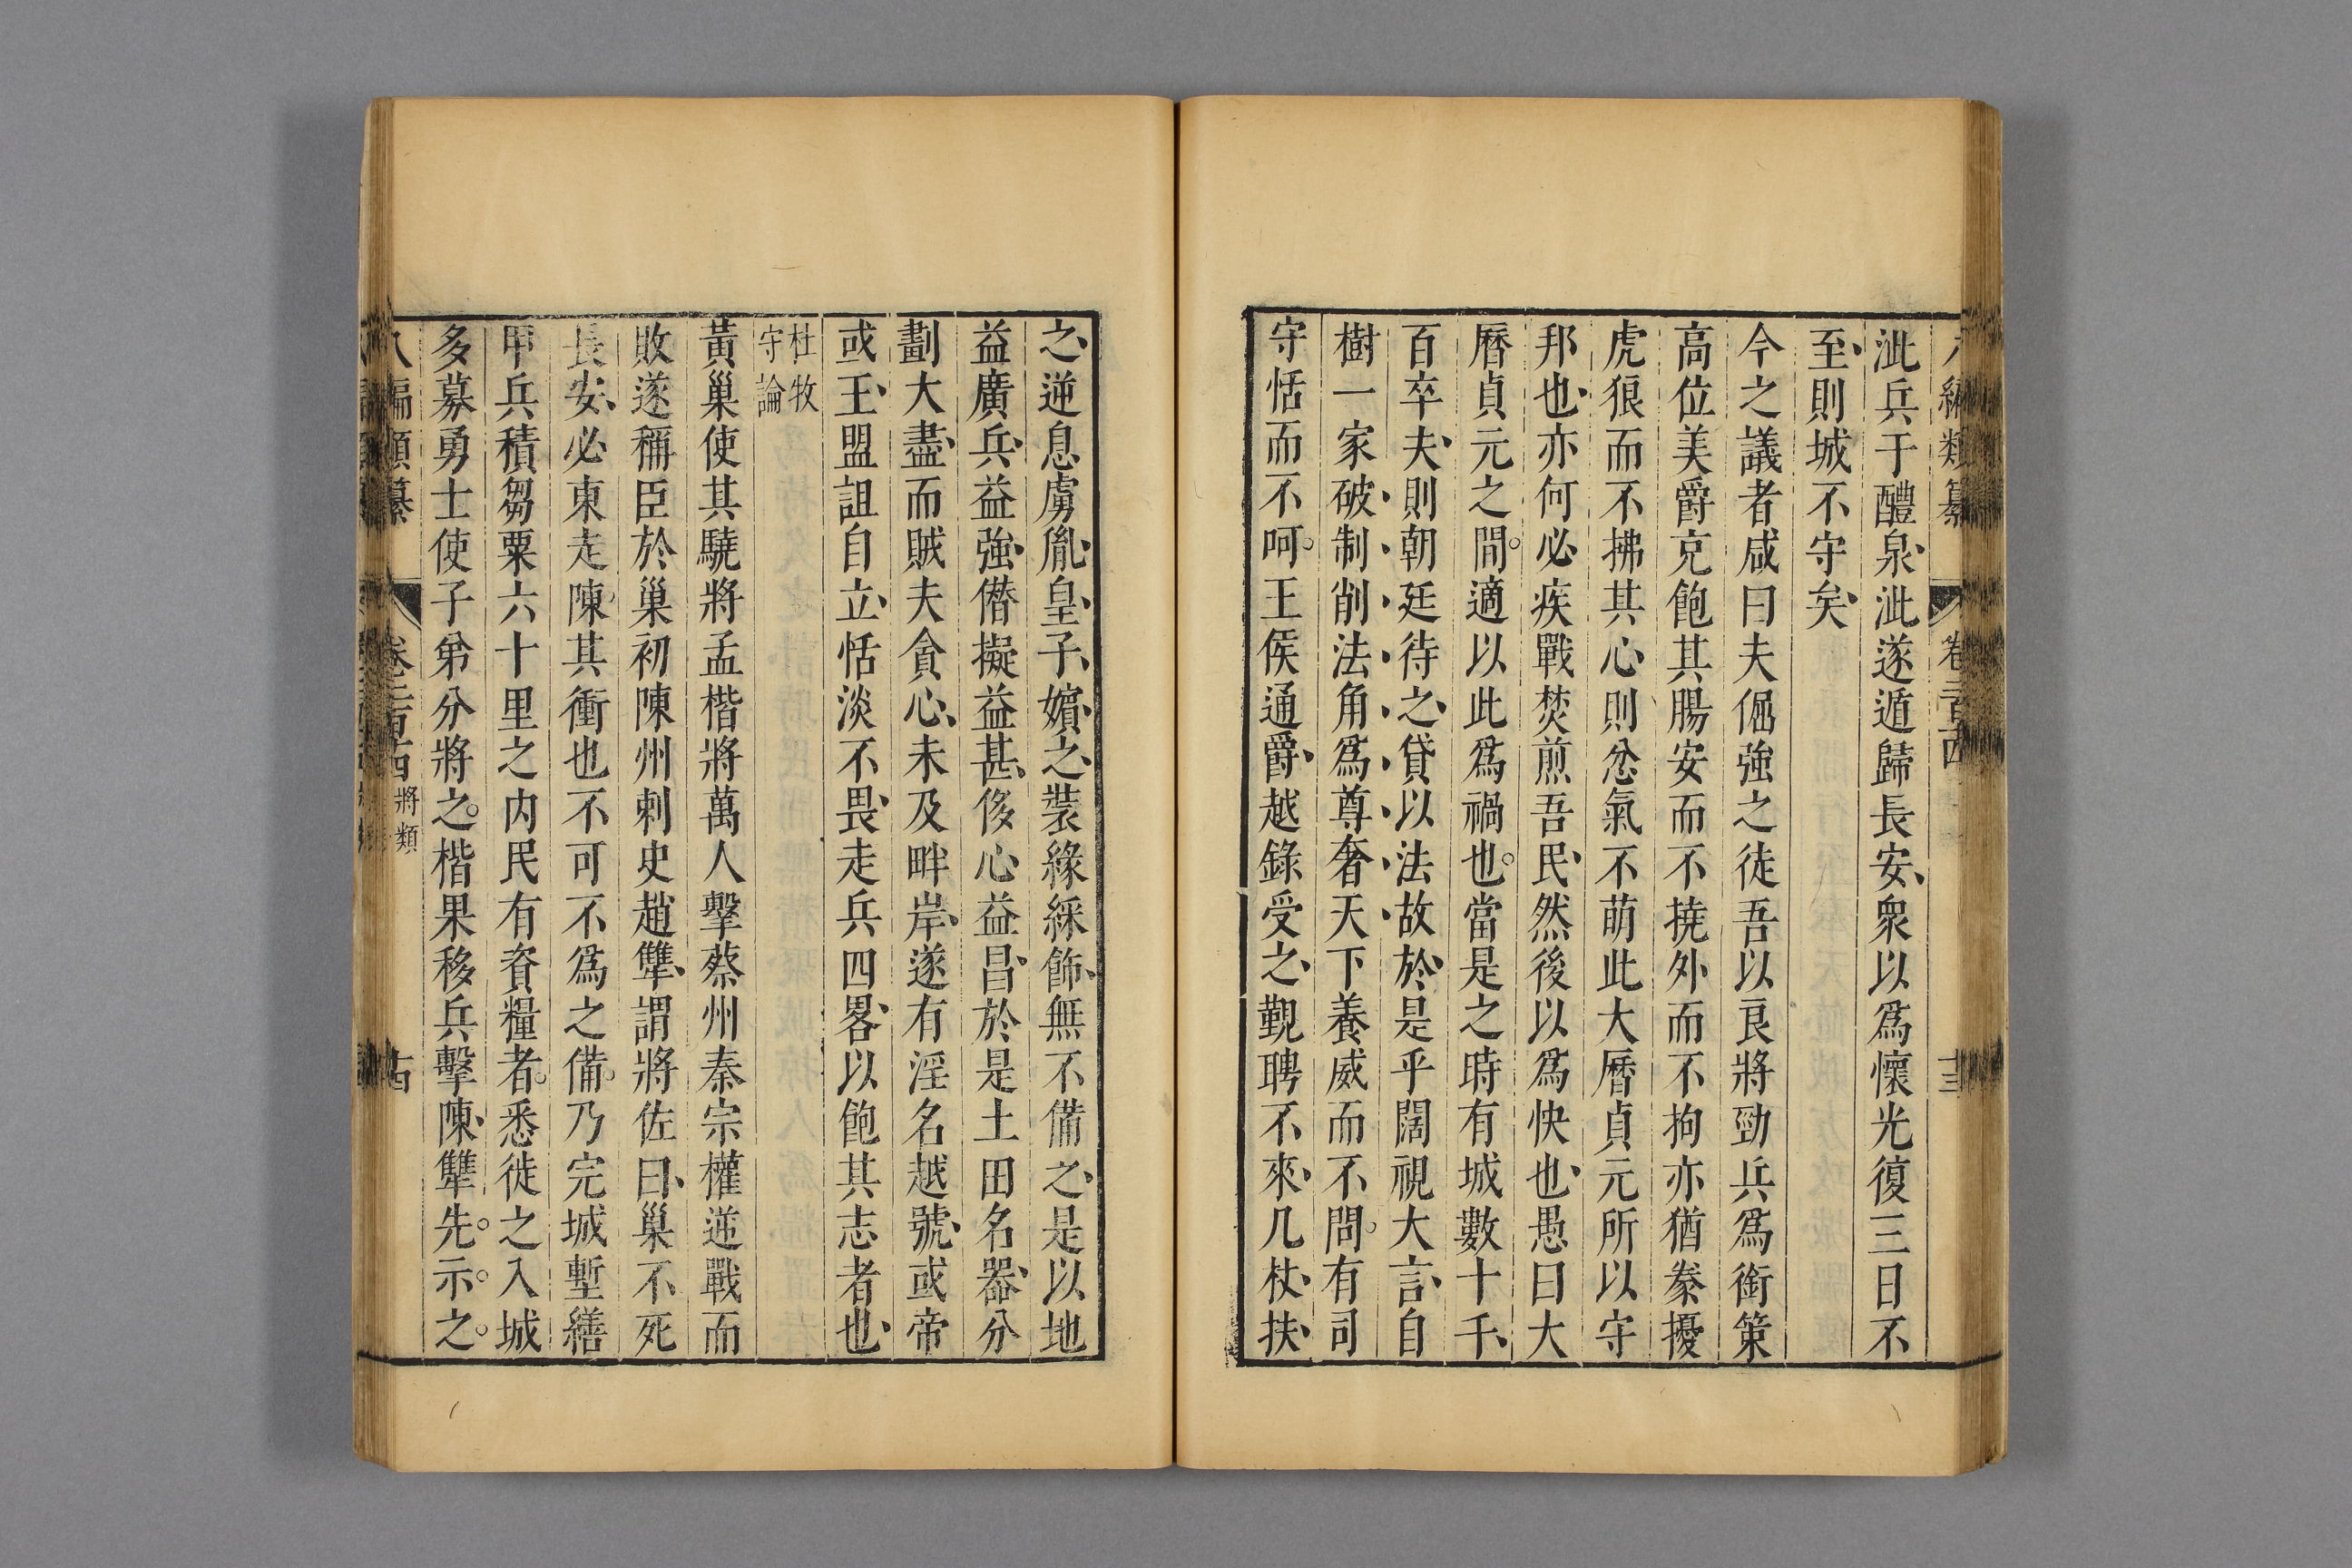 八編類纂 卷二百四 十三
泚兵于醴泉泚遂遁歸長安衆以爲懷光復三日不
至則城不守矣
今之議者咸曰夫倔強之徒吾以良將勁兵爲銜策
高位美爵充飽其腸安而不撓外而不拘亦猶豢擾
虎狼而不拂其心則忿氣不萌此大曆貞元所以守
邦也亦何必疾戰焚煎吾民然後以爲快也愚曰大
曆貞元之間適以此爲禍也當是之時有城數十千
百卒夫則朝廷待之貸以法故於是乎闊視大言自
樹一家破制削法角爲尊奢天下養威而不問有司
守恬而不呵王侯通爵越錄受之覲聘不來几杖扶
之逆息虜胤皇子嬪之裝緣綵飾無不備之是以地
益廣兵益強僭擬益甚侈心益昌於是土田名器分
劃大盡而賊夫貪心未及畔岸遂有淫名越號或帝
或王盟詛自立恬淡不畏走兵四畧以飽其志者也
杜牧
守論
黃巢使其驍將孟楷將萬人擊蔡州秦宗權逆戰而
敗遂稱臣於巢初陳州刺史趙犨謂將佐曰巢不死
長安必東走陳其衝也不可不爲之備乃完城塹繕
甲兵積芻粟六十里之內民有資糧者悉徙之入城
多募勇士使子弟分將之楷果移兵擊陳犨先示之
八編類纂 卷二百四 將類 十四